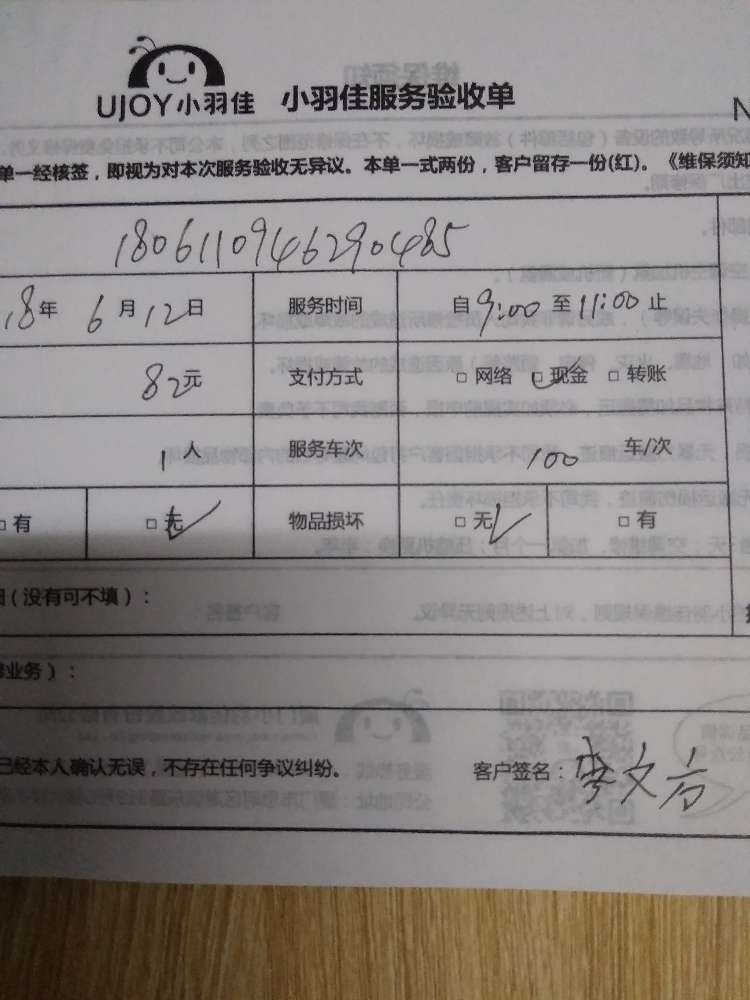 UJOY小羽佳 小羽佳服务验收单 N
单一经核签，即视为对本次服务验收无异议。本单一式两份，客户留存一份(红)。《维保须知
1806110946290485
18年 6月12日 服务时间 自9:00至11:00止
82元 支付方式 □ 网络 □ 现金 □ 转账
1人 服务车次 100 车/次
□ 有 □ 无 物品损坏 □ 无 □ 有
(没有可不填)：
业务)：
已经本人确认无误，不存在任何争议纠纷。 客户签名：李文方